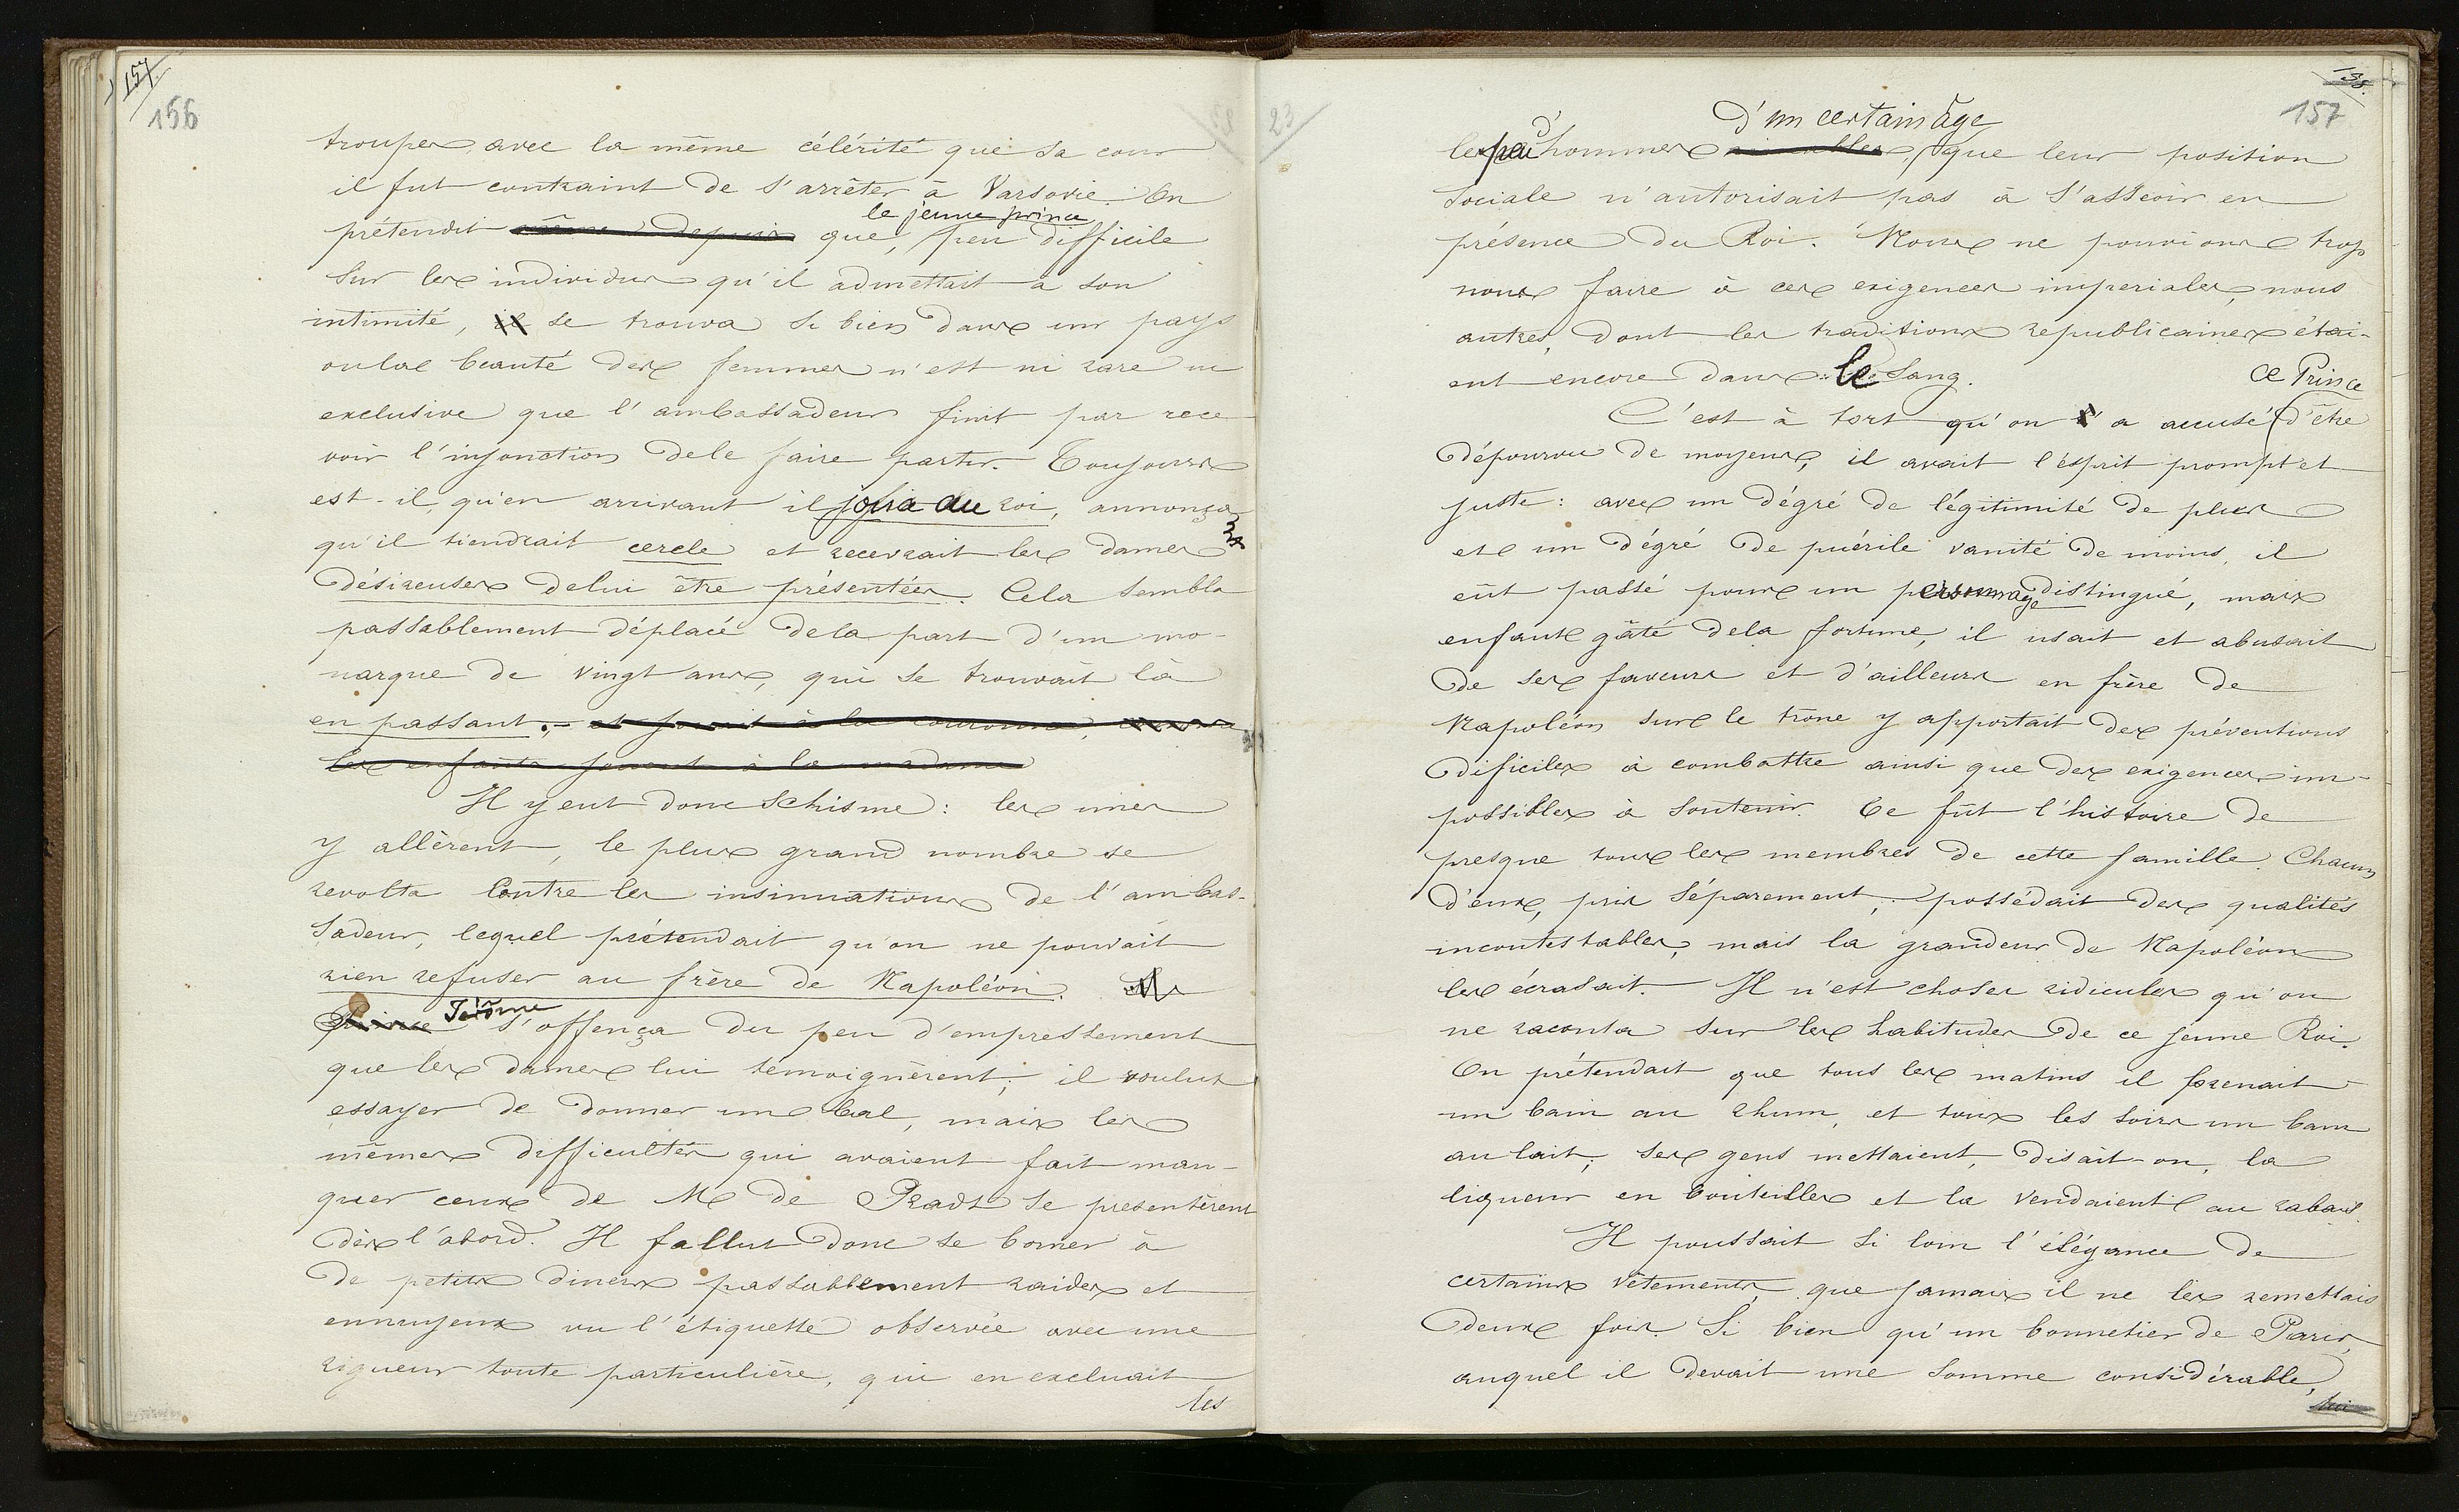 157
156
troupes avec la même célérité que sa cour
il fut contraint de s'arrêter à Varsovie. On
le jeune prince
prétendit même depuis que, peu difficile
sur les individus qu'il admettait à son
intimité, il se trouva si bien dans un pays
ou la beauté des femmes n'est ni rare ni
exclusive que l'ambassadeur finit par rece
voir l'injonction de le faire partir. Toujours
est-il, qu'en arrivant il joua au roi, annonça
qu'il tiendrait cercle et recevrait les dames
désireuses de lui être présentées. Cela sembla
passablement déplacé de la part d'un mo-
narque de vingt ans, qui se trouvait là
en passant, et jouait à la couronne, comme
les enfants jouent à la madame
Il y eut donc schisme: les unes
y allèrent, le plus grand nombre se
revolta contre les insinuations de l'ambas-
sadeur, lequel prétendait qu'on ne pouvait
rien refuser au frère de Napoléon.
Jérôme
Prince s'offença du peu d'empressement
que les dames lui temoignèrent; il voulut
essayer de donner un bal, mais les
mêmes difficultés qui avaient fait man-
quer ceux de M de Pradt se presentèrent
dès l'abord. Il fallut donc se borner à
de petits diners passablement raides et
ennuyeux vu l'étiquette observée avec une
rigueur toute particulière, qui en excluait
les
23
157
d'un certain âge
les hommes que leur position
sociale n'autorisait pas à s'asseoir en
présence du Roi. Nous ne pouvions trop
nous faire à ces exigences imperiales, nous
autres, dont les traditions republicaines étai-
ent encore dans le sang.
ce Prince
C'est à tort qu'on l'a accusé d'être
dépourvu de moyens, il avait l'esprit prompt et
juste: avec un dégré de légitimité de plus
et un dégré de puérile vanité de moins, il
eût passé pour un personnage distingué, mais
enfant gâté de la fortune, il usait et abusait
de ses faveurs et d'ailleurs en frère de
Napoléon sur le trône y apportait des préventions
dificiles à combattre ainsi que des exigences im-
possibles à soutenir. Ce fût l'histoire de
presque tous les membres de cette famille. Chacun
d'eux, pris séparement, possédait des qualités
incontestables, mais la grandeur de Napoléon
les écrasait. Il n'est choses ridicules qu'on
ne raconta sur les habitudes de ce jeune Roi.
On prétendait que tous les matins il prenait
un bain au rhum, et tous les soirs un bain
au lait; ses gens mettaient, disait-on, la
liqueur en bouteilles et la vendaient au rabais.
Il poussait si loin l'élégance de
certains vêtements, que jamais il ne les remettais
deux fois. Si bien qu'un bonnetier de Paris,
auquel il devait une somme considérable,